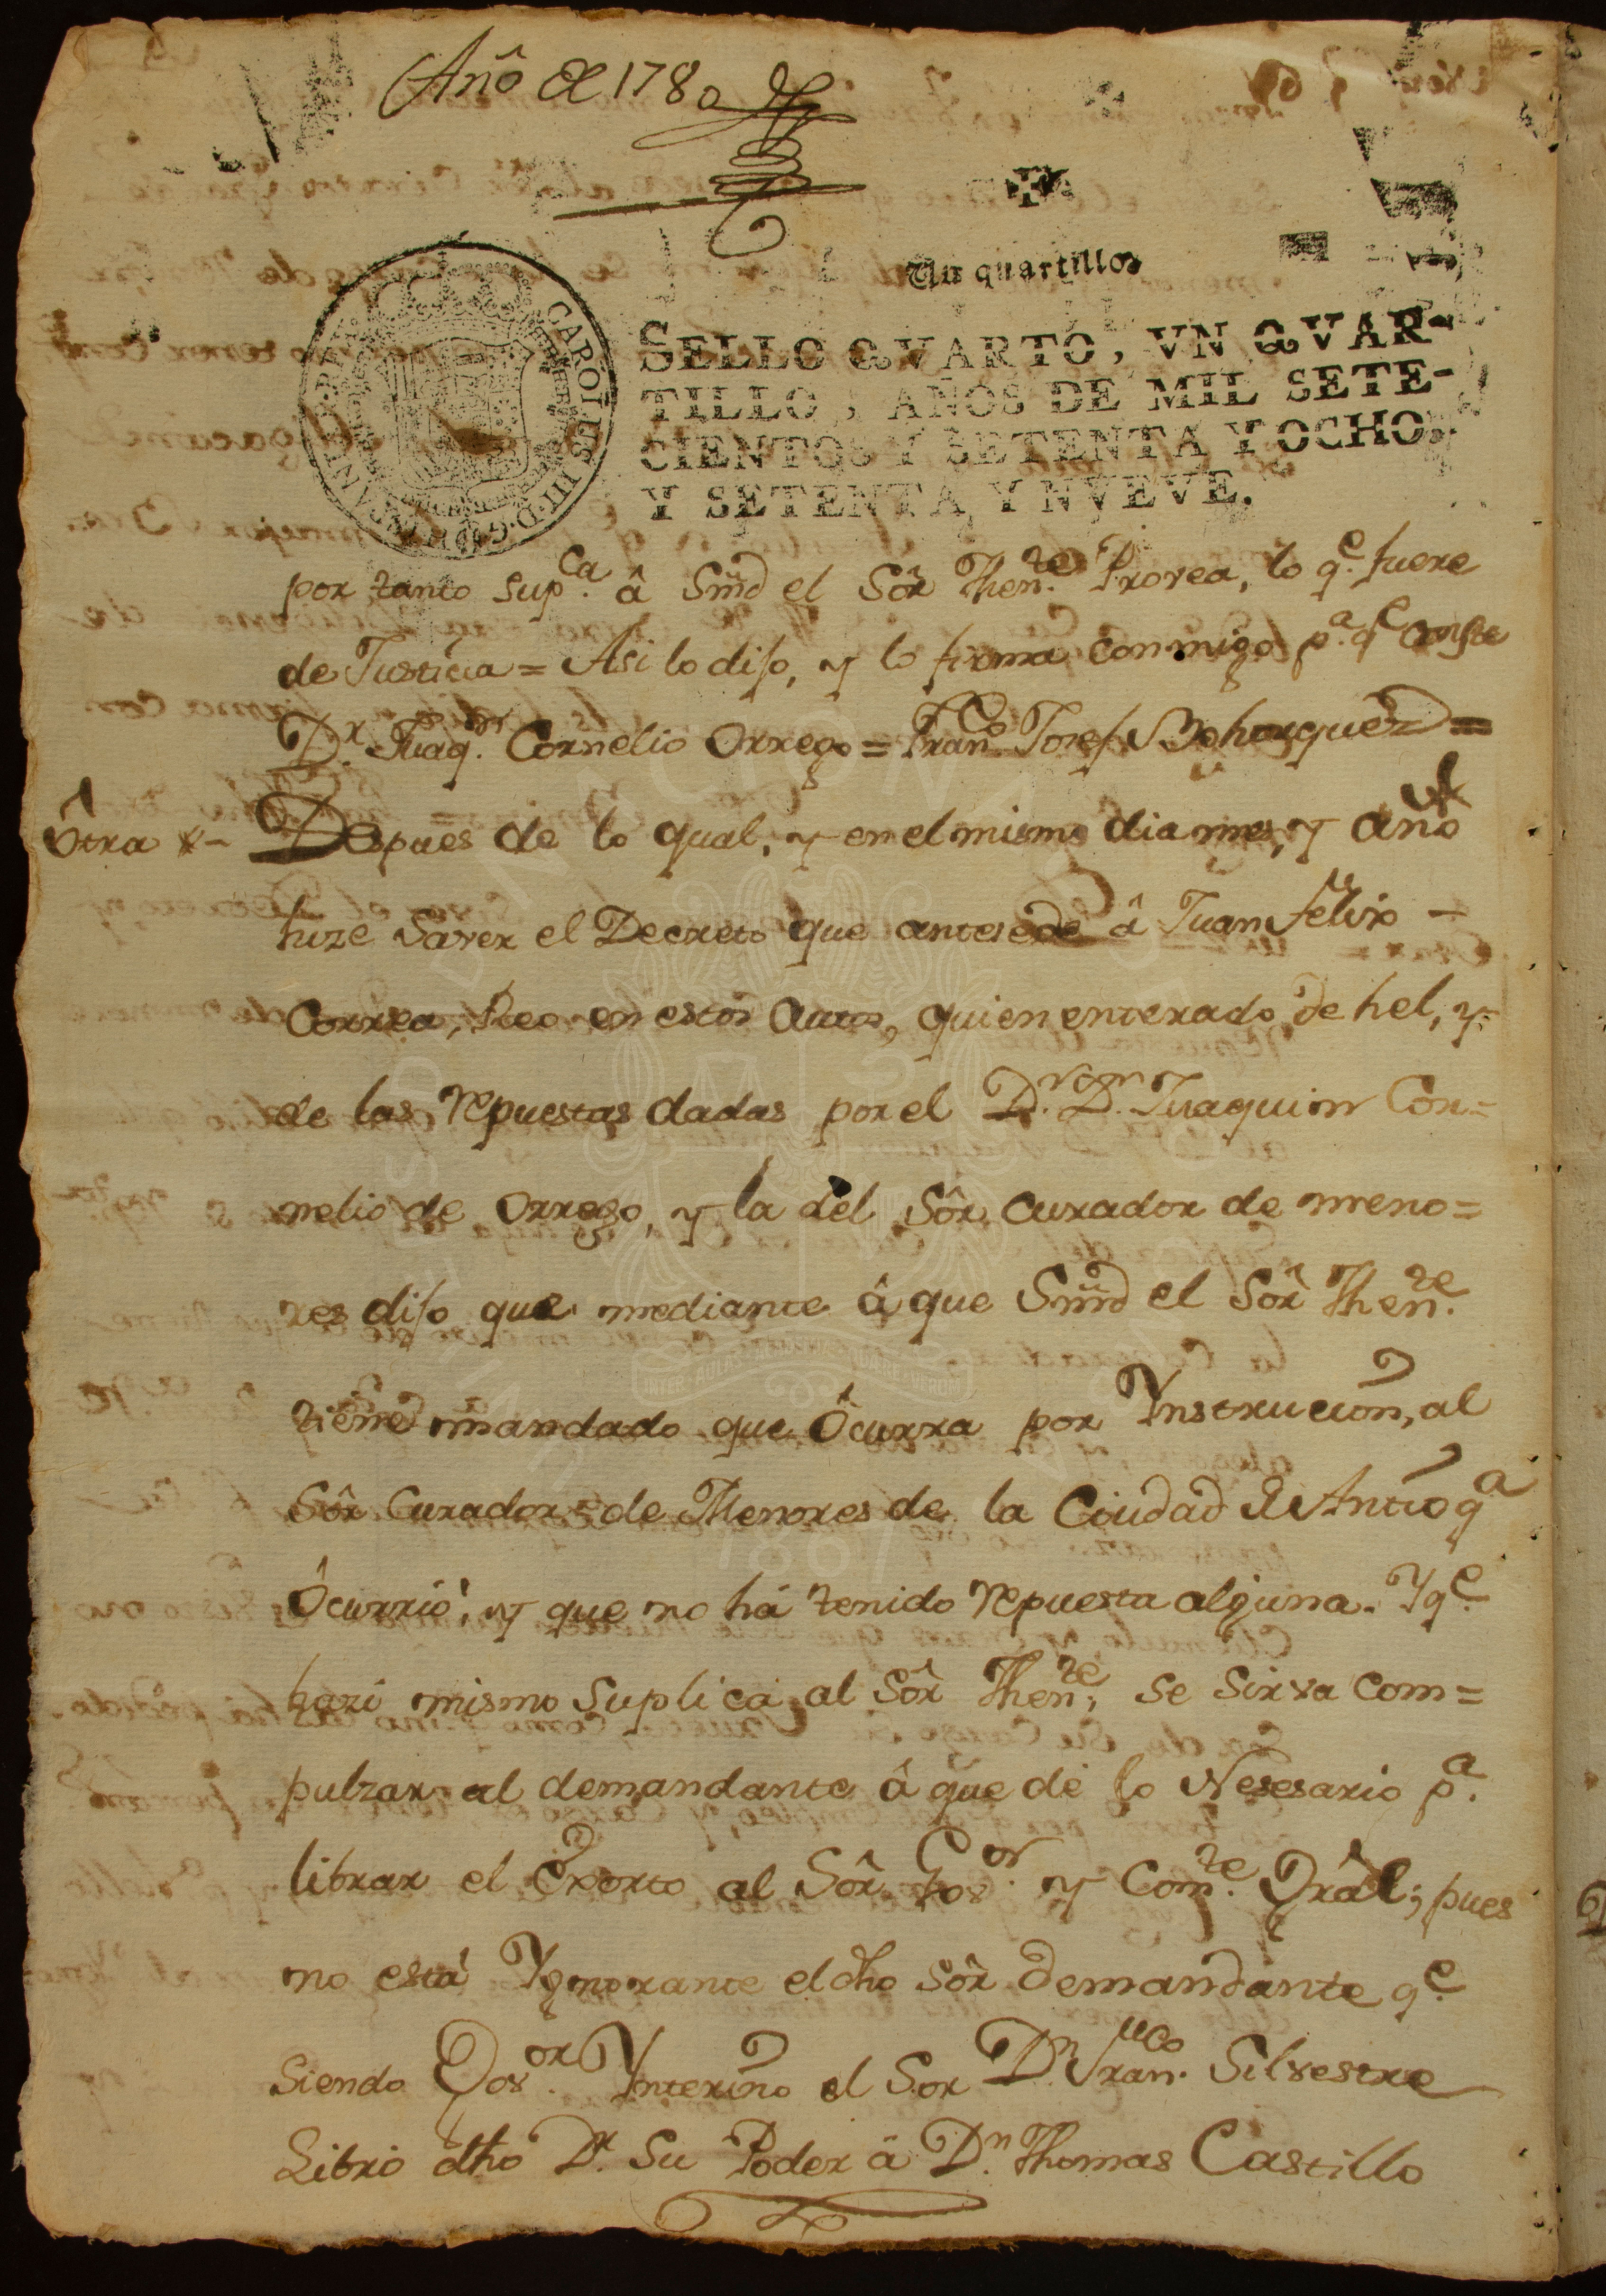 Año de 1780
Un quartillo
SELLO QVARTO, VN QVAR-
TILLO, AÑOS DE MIL SETE-
CIENTOS Y SETENTA Y OCHO,
Y SETENTA Y NVEVE.
CAROLUS III D. G. HISPANIAR
por tanto Sup.ca â Smd el Sôr Then.te Provea, lo q.e fuere
de Justicia = Asi lo dijo, y lo firma conmigo p.a q.e conste
D.r Juaq.n Cornelio Orrego = Fran.co Josef Bohorquez =
Ôtra Despues de lo qual, y en el mismo dia mes, y año
hize Saver el Decreto que antesede â Juan Felix
Correa, Reo en estos Autos, quien enterado de hel, y
de las repuestas dadas por el D.r D.n Juaquin Cor=
nelio de Orrego, y la del Sôr Curador de meno=
res dijo que mediante â que Smrd el Sôr Then.te
tiene mandado que Ôcurra por Ynstrucion, al
Sôr Curador de Menores de la Ciudad de Antioq.a
Ôcurrió, y que no há tenido repuesta alguna. Y q.e
hazi mismo Suplica al Sôr Then.te, se sirva com=
pulzar al demandante â que dé lo Nesesario p.a
librar el Exorto al Sôr Gov.or y Com.te Grâl; pues
no está Ygnorante el dho Sôr demandante q.e
siendo Gov.or Ynterino el Sor D.n Fran.co Silvestre
Libró dho D.r Su Poder â D.n Thomas Castillo
INTER AULAS DARE VERUM
1867